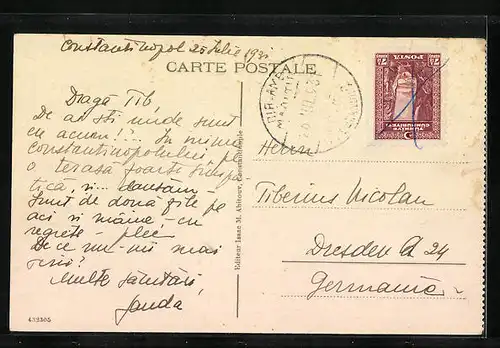 Constantinopol 25 Iulie 193
CARTE POSTALE
Dragă Tib,
De ai ști unde sunt
eu acum!... În inima
constantinopolului pe
o terasă foarte simpa
tică, și... dansăm.
Sunt de două zile pe
aci și mâine - cu
regrete - plec
De ce nu-mi mai
scrii?
Multe salutări,
Editeur Isaac M. Ahitouv, Constantinople
Herrn
Tiberius Nicolau
Dresden A 24
Germania
POSTA
TÜRKIYE
CUMHURIYETI